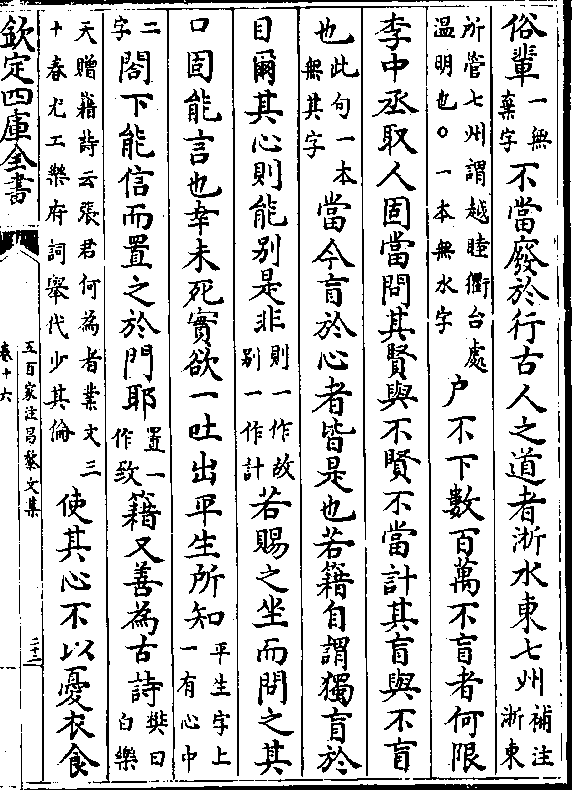 俗輩一無輩字不當廢於行古人之道者浙水東七州補注浙東
所管七州謂越睦衢台處温明也○一本無水字戸不下數百萬不盲者何限
李中丞取人固當問其賢與不賢不當計其盲與不盲
也此句一本無其字當今盲於心者皆是也若籍自謂獨盲於
目爾其心則能别是非則一作故别一作計若賜之坐而問之其
口固能言也幸未死實欲一吐出平生所知平生字上一有心中
二字閤下能信而置之於門耶置一作致籍又善為古詩樊曰白樂
天贈籍詩云張君何為者業文三十春尤工樂府詞舉代少其倫使其心不以憂衣食
欽定四庫全書
五百家注昌黎文集
卷十六
二十二